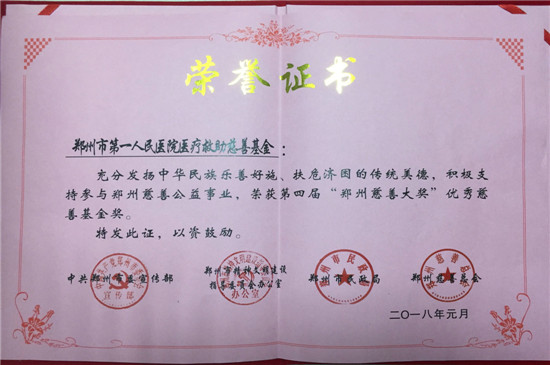 荣誉证书
郑州市第一人民医院医疗救助慈善基金：
充分发扬中华民族乐善好施、扶危济困的传统美德，积极支
持参与郑州慈善公益事业，荣获第四届“郑州慈善大奖”优秀慈
善基金奖。
特发此证，以资鼓励。
中共郑州市委宣传部
郑州市精神文明建设
指导委员会办公室
郑州市民政局
郑州慈善总会
宣传部
办公室
二〇一八年元月